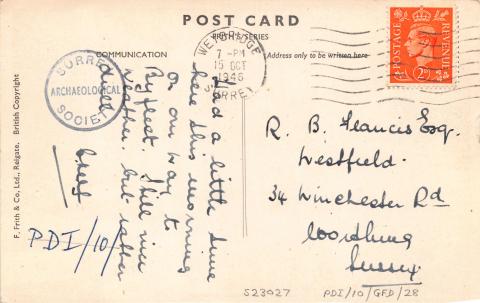 POST CARD
FRITH'S SERIES
COMMUNICATION
Address only to be written here
WEYBRIDGE
7 - PM
15 OCT
1946
SURREY
POSTAGE
REVENUE
2D
SURREY
ARCHAEOLOGICAL
SOCIETY
Had a little time
here this morning
on our way to
Byfleet. Still nice
weather, but rather
dull
R. B. Francis Esq.
Westfield.
34 Winchester Rd
Worthing
Sussex
PDI/10/
S23027
PDI/10/GFD/28
F. Frith & Co., Ltd., Reigate. British Copyright